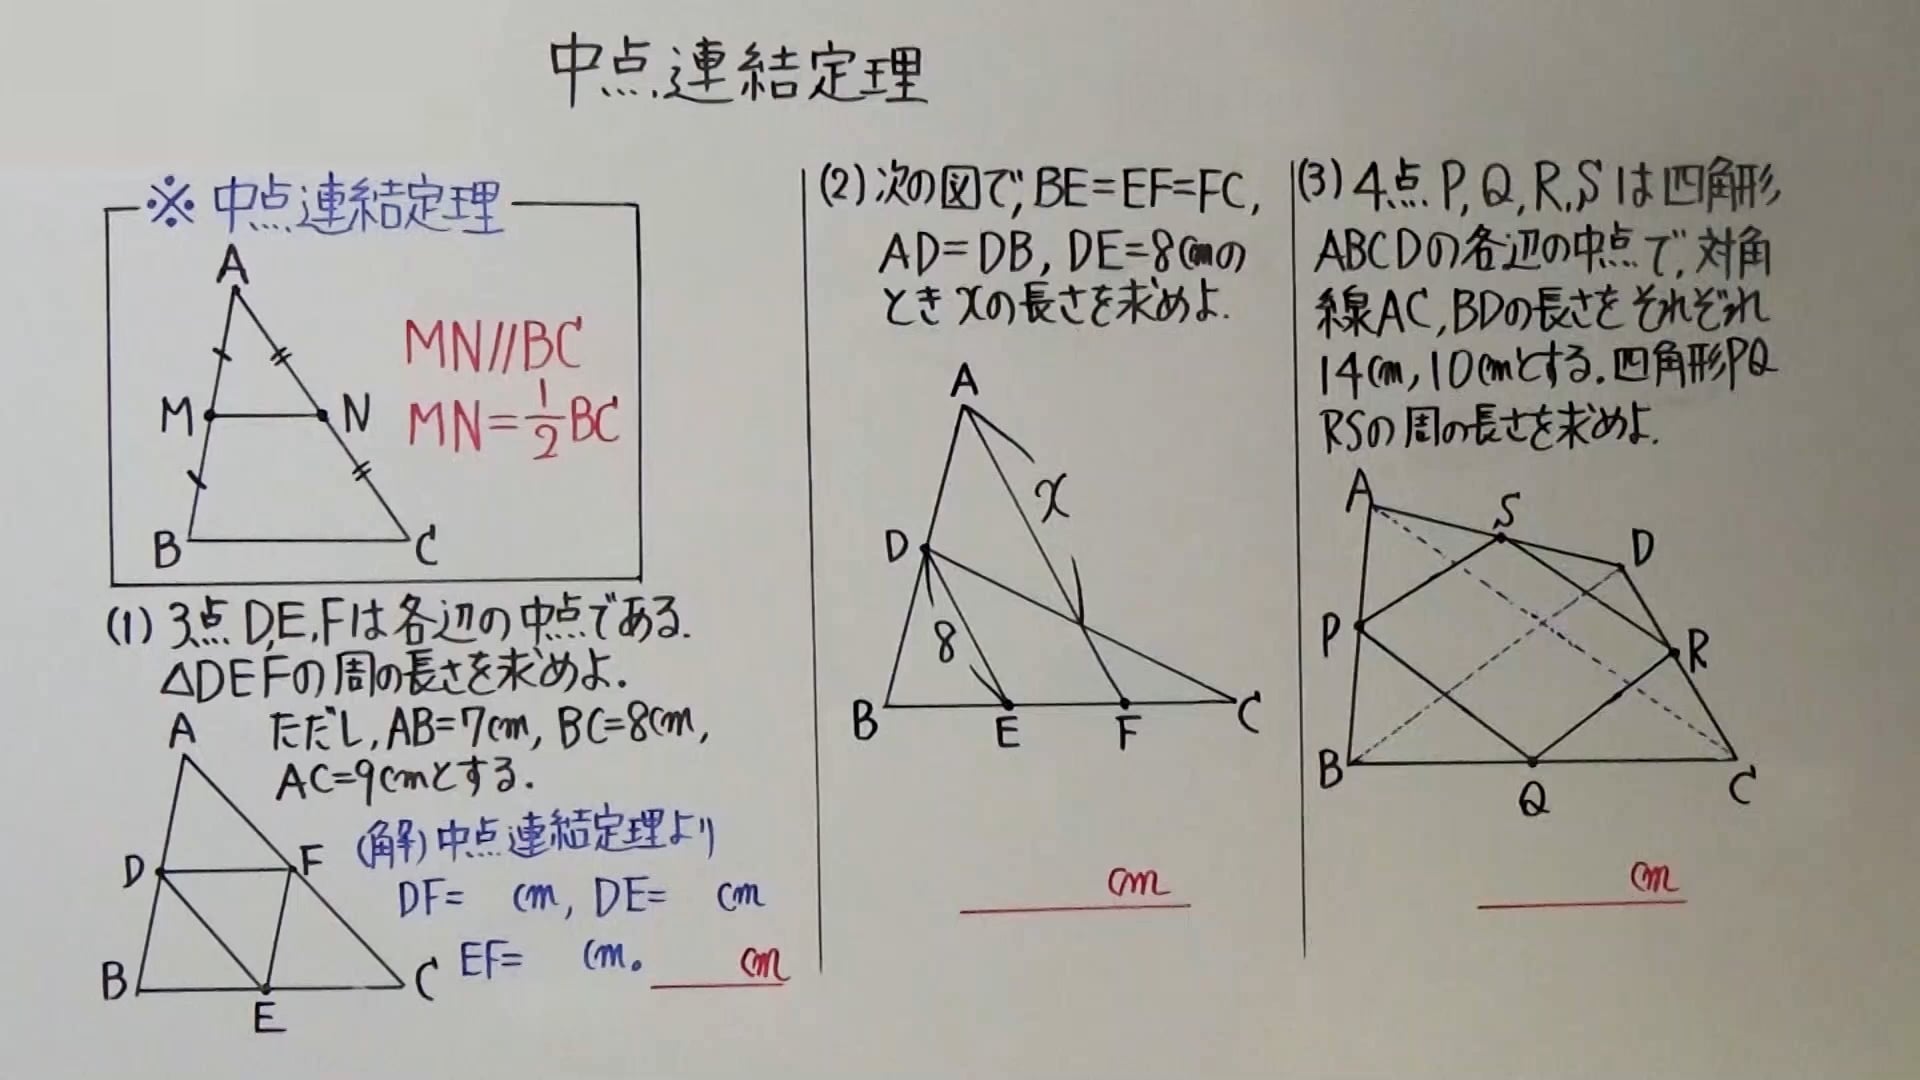 中点連結定理
※中点連結定理
A
MN//BC
M
N
MN=1/2BC
B
C
(1)3点D,E,Fは各辺の中点である.
△DEFの周の長さを求めよ.
ただし,AB=7cm,BC=8cm,
AC=9cmとする.
A
(解)中点連結定理より
D
F
DF= cm, DE= cm
EF= cm。
cm
B
C
E
(2)次の図で,BE=EF=FC,
AD=DB, DE=8cmの
ときxの長さを求めよ.
A
x
D
8
B
E
F
C
cm
(3)4点P,Q,R,Sは四角形
ABCDの各辺の中点で,対角
線AC,BDの長さをそれぞれ
14cm,10cmとする.四角形PQ
RSの周の長さを求めよ.
A
S
D
P
R
B
Q
C
cm